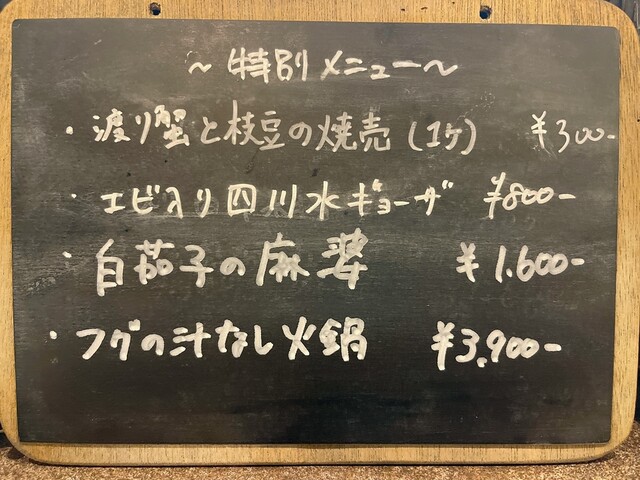 ～特別メニュー～
・渡り蟹と枝豆の焼売(1ヶ) ¥300-
・エビ入り四川水ギョーザ ¥800-
・白茄子の麻婆 ¥1.600-
・フグの汁なし火鍋 ¥3,900-